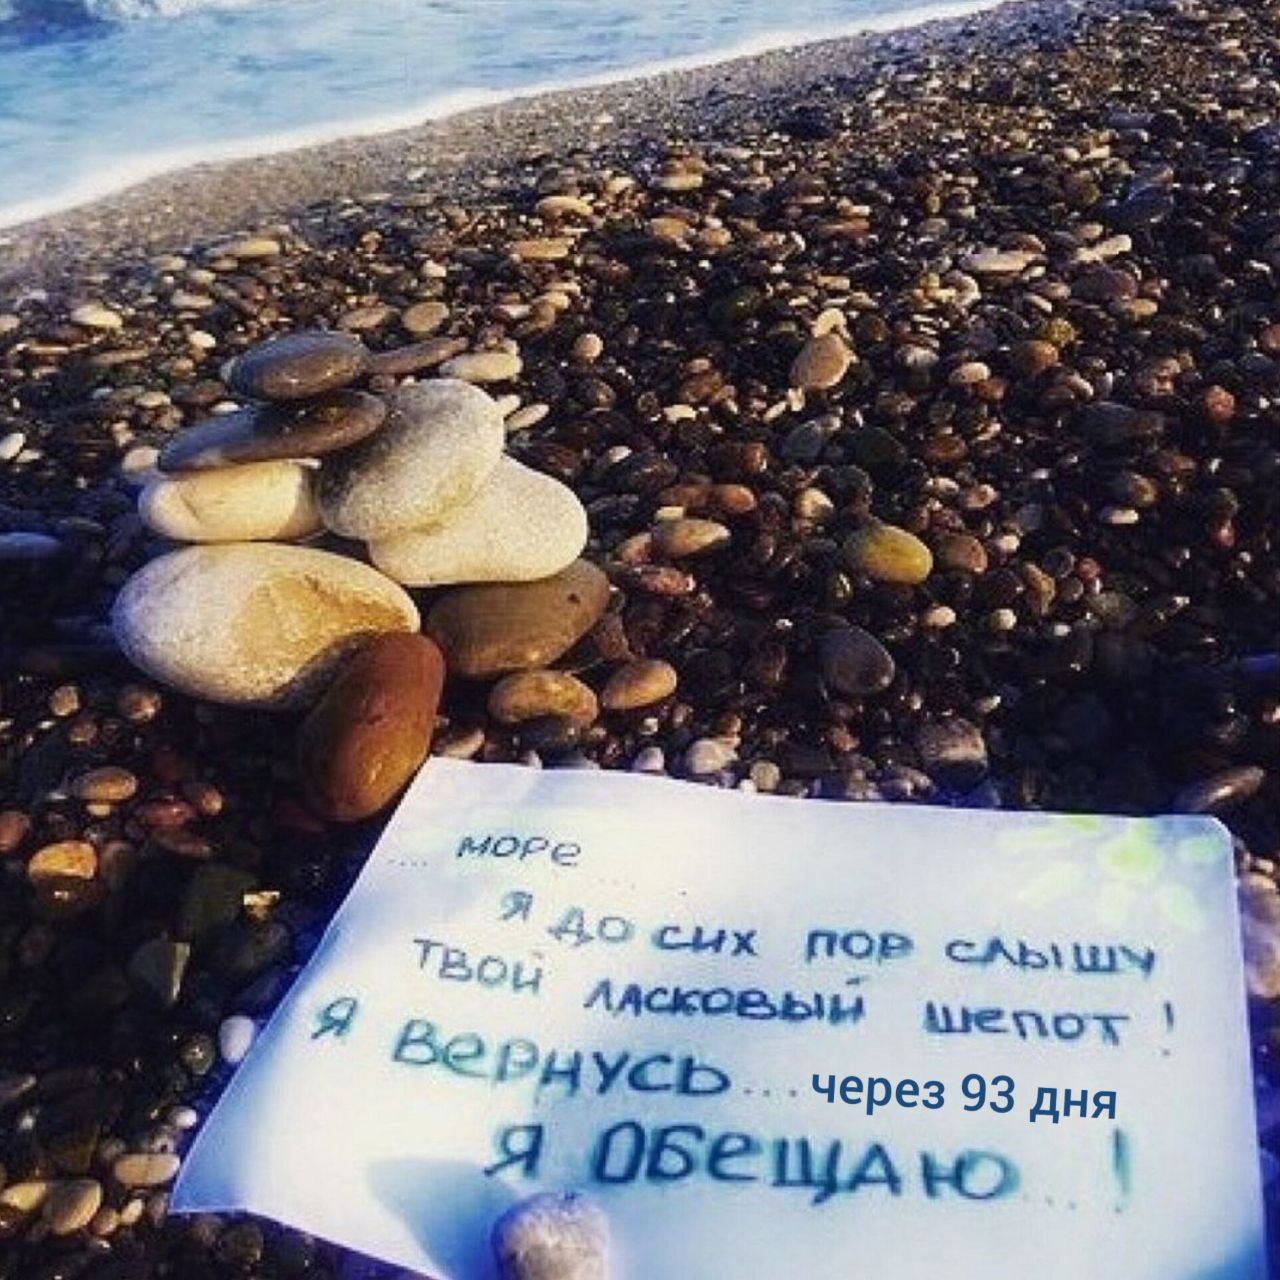 .... море
я до сих пор слышу
твой ласковый шепот!
я вернусь... через 93 дня
я обещаю...!